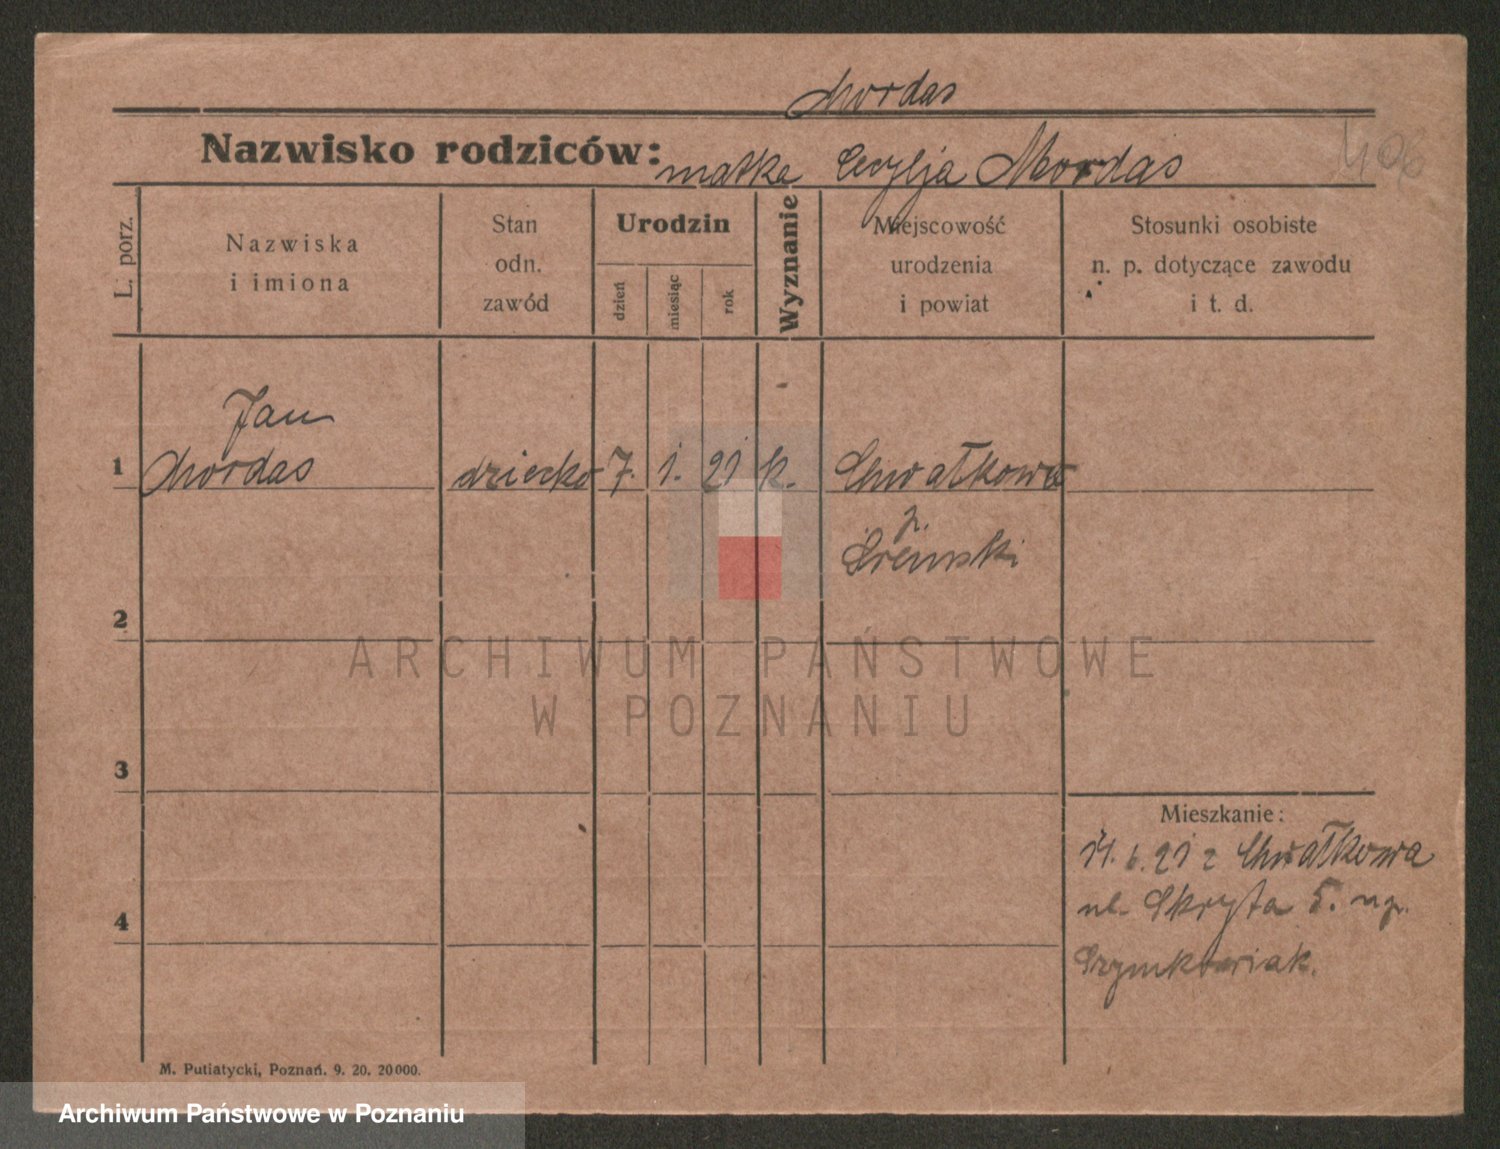 Mordas
Nazwisko rodziców: matka Cecylja Mordas
L. porz.
Nazwiska
i imiona
Stan
odn.
zawód
Urodzin
dzień
miesiąc
rok
Wyznanie
Miejscowość
urodzenia
i powiat
Stosunki osobiste
n. p. dotyczące zawodu
i t. d.
Jan
1 Mordas dziecko 7. 1. 21 k. Chwałkowo
p.
Śremski
2
3
4
Mieszkanie:
14. 6. 21 z Chwałkowa
ul. Skryta 5. np.
Szymkowiak.
M. Putiatycki, Poznań. 9. 20. 20000.
ARCHIWUM PAŃSTWOWE
W POZNANIU
Archiwum Państwowe w Poznaniu